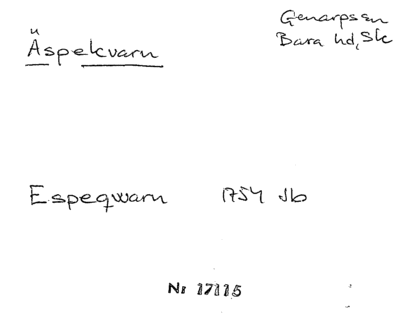 Genarps sn
Bara hd, Sk
Äspekvarn
Espeqwarn 1754 Jb
Nr 17115